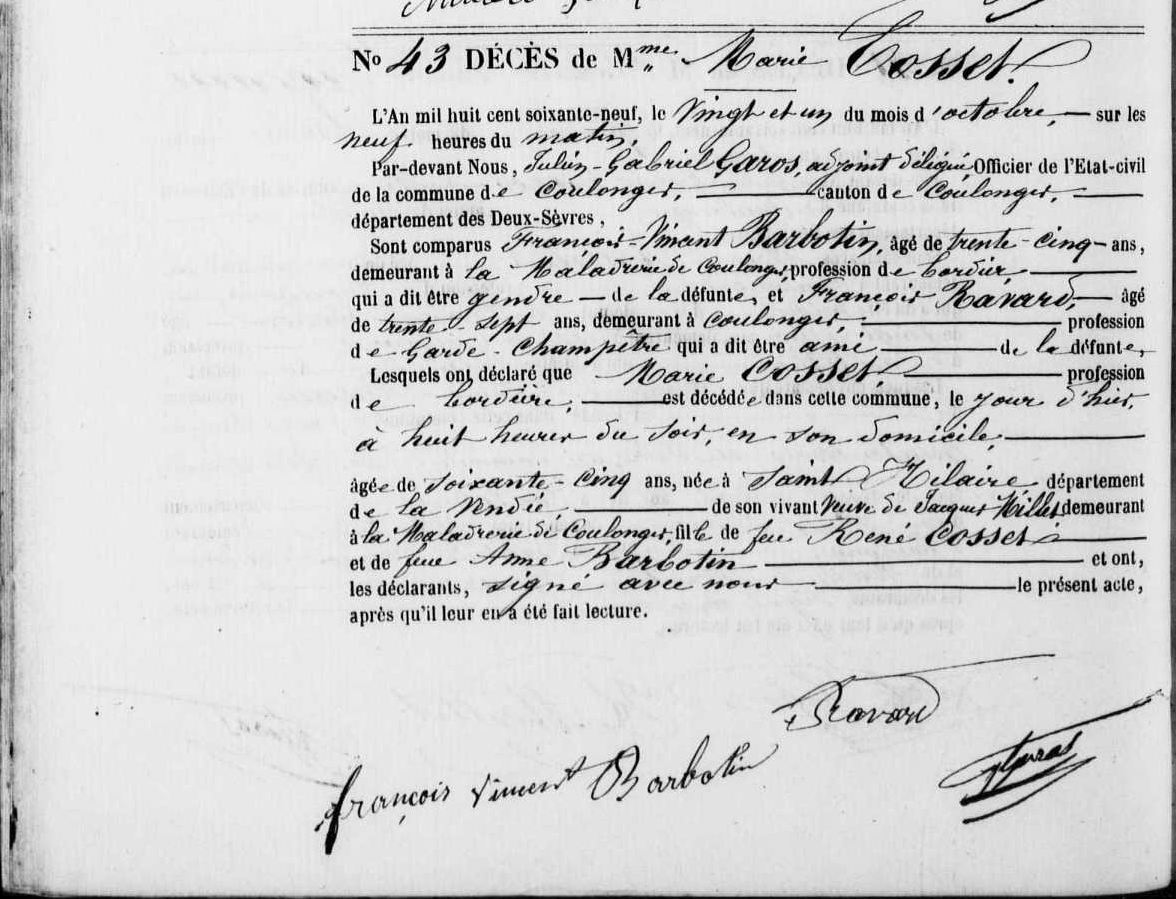 No 43 DÉCÈS de Mme Marie Cosset.
L'An mil huit cent soixante-neuf, le Vingt et un du mois d'octobre, — sur les
neuf heures du matin,
Par-devant Nous, Julien-Gabriel Garos, adjoint délégué Officier de l'Etat-civil
de la commune de Coulonges, — canton de Coulonges, —
département des Deux-Sèvres,
Sont comparus François-Vincent Barbotin, âgé de trente-cinq ans,
demeurant à la Maladrerie de Coulonges, profession de bordier —
qui a dit être gendre — de la défunte, et François Ravard, — âgé
de trente-sept ans, demeurant à Coulonges, — profession
de Garde-Champêtre qui a dit être ami — de la défunte,
Lesquels ont déclaré que Marie Cosset — profession
de bordière, — est décédée dans cette commune, le jour d'hier,
a huit heures du soir, en son domicile, —
âgée de soixante-cinq ans, née à Saint Hilaire département
de la Vendée — de son vivant Veuve de Jacques Millet, demeurant
à la Maladrerie de Coulonges, fille de feu René Cosset —
et de feue Anne Barbotin — et ont,
les déclarants, signé avec nous — le présent acte,
après qu'il leur en a été fait lecture.
Ravard
françois Vincent Barbotin
Garos